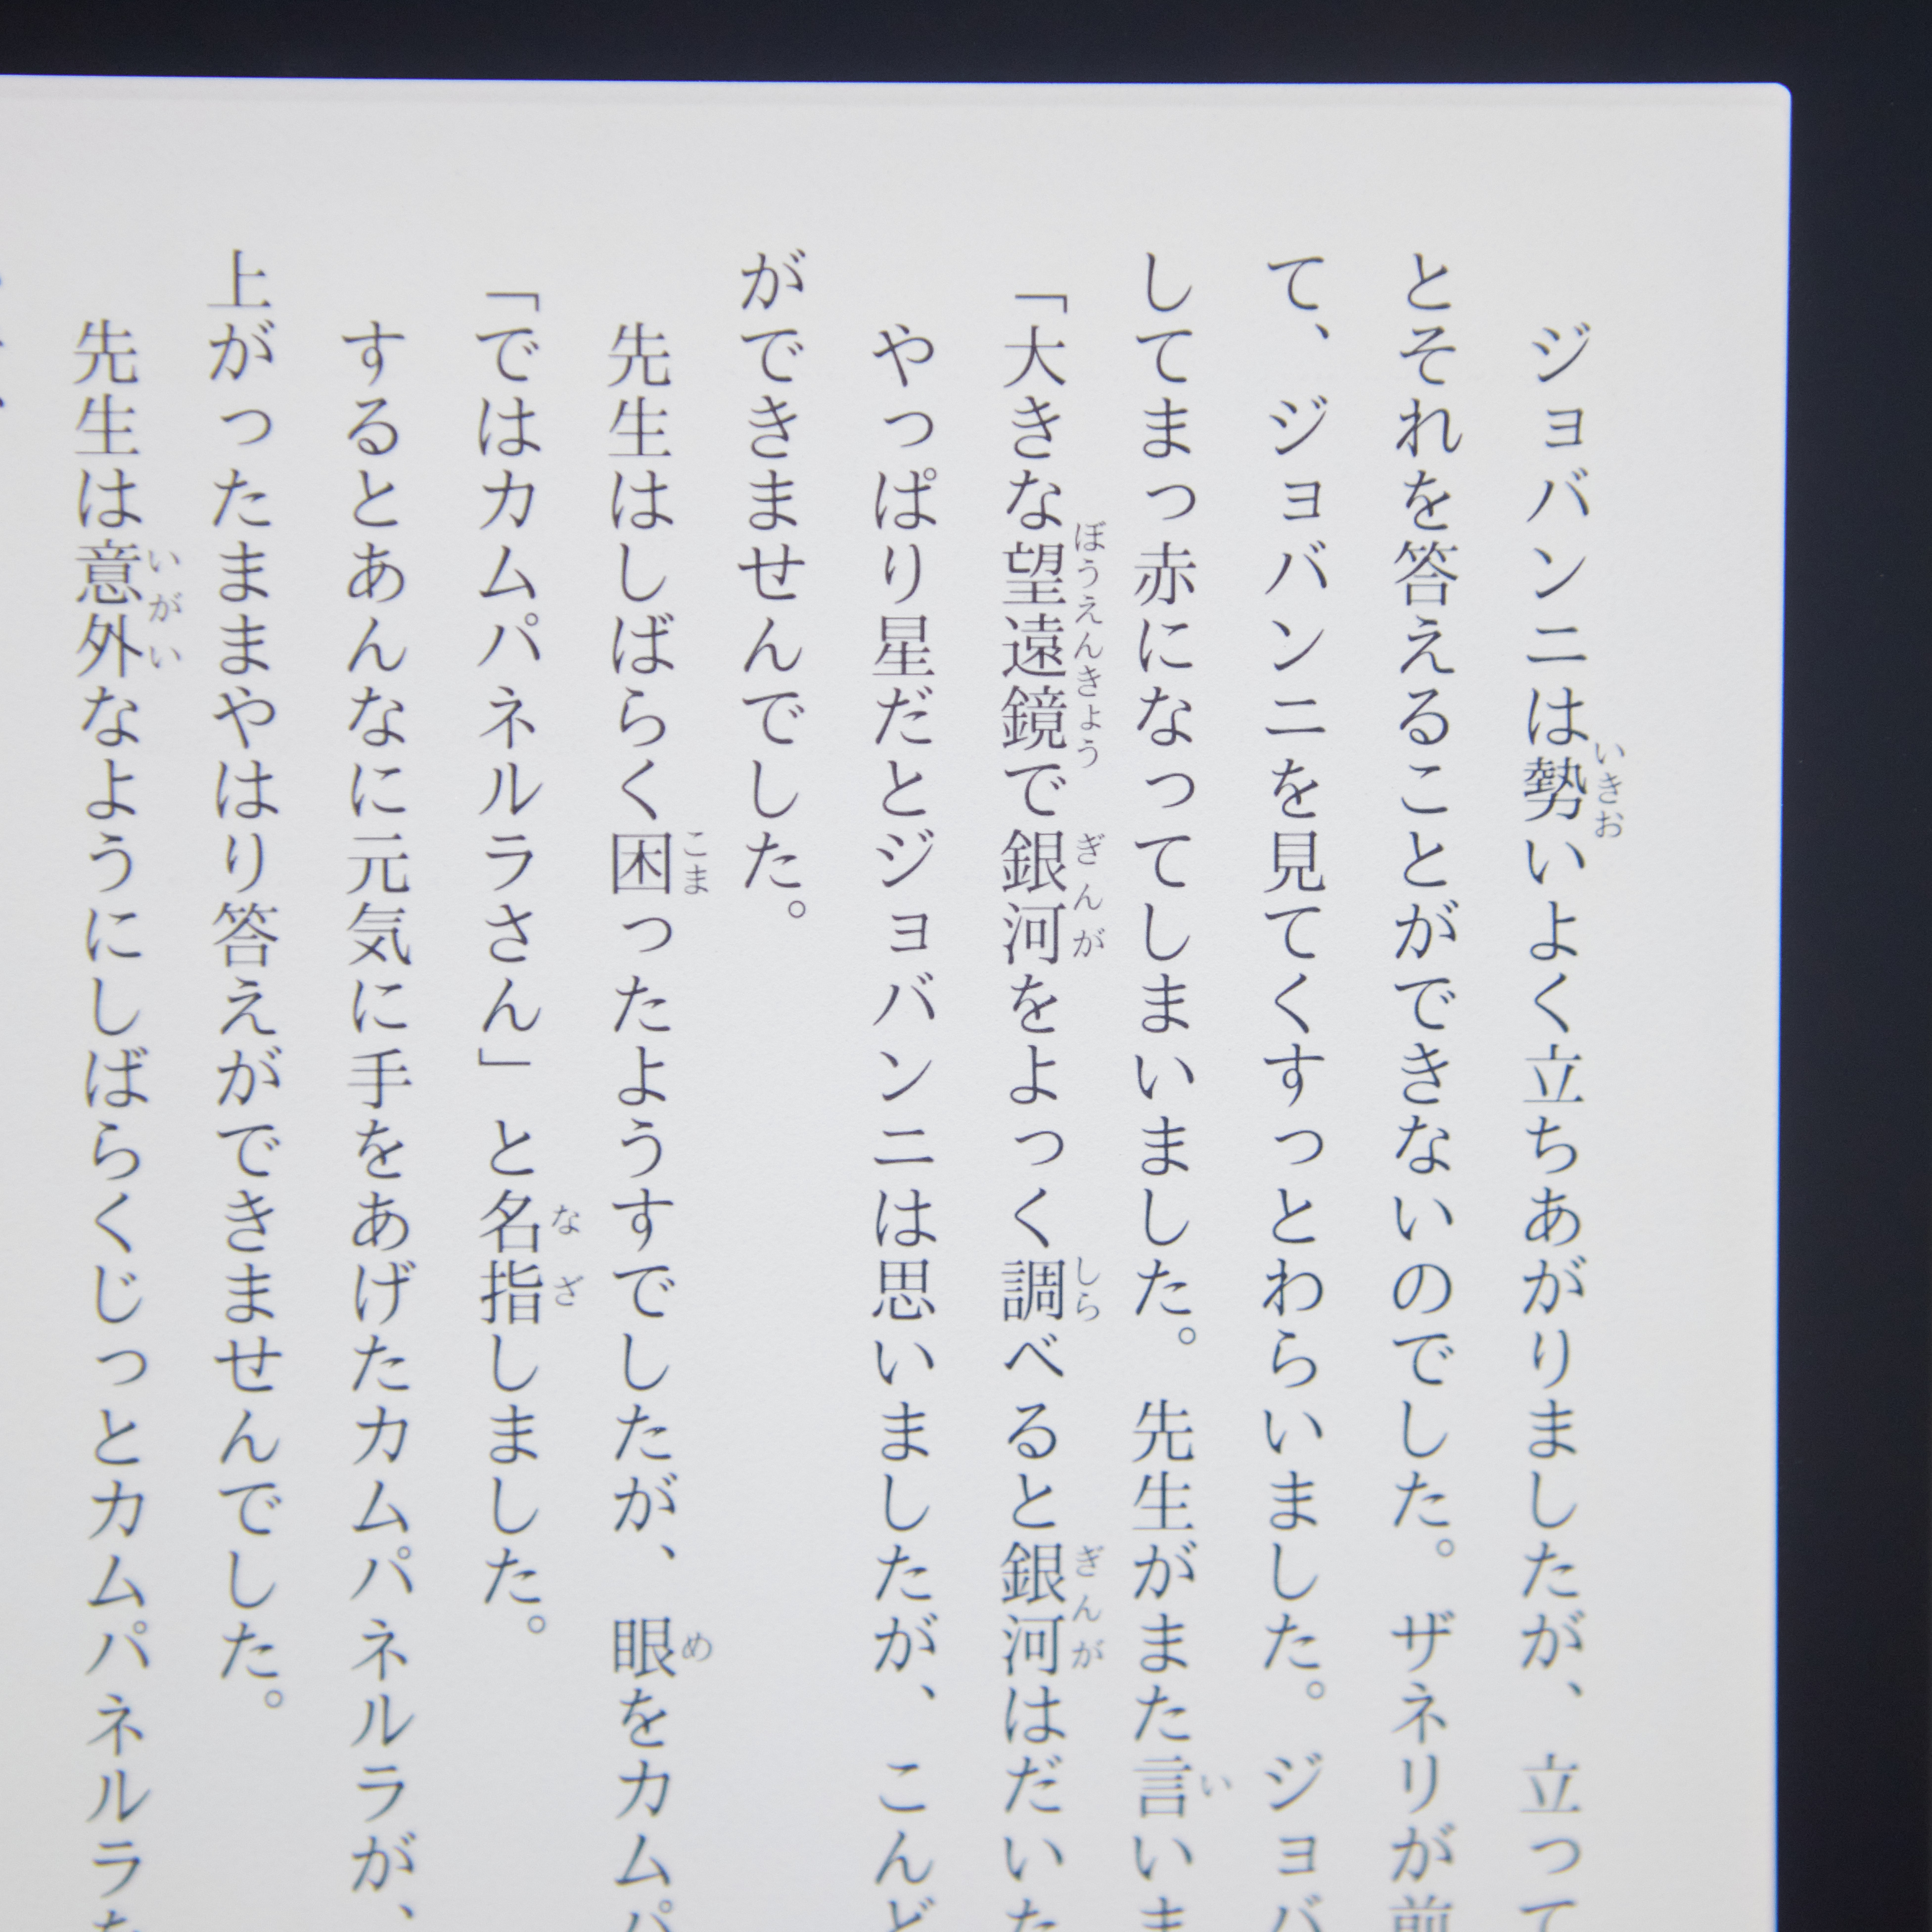 ジョバンニは勢いよく立ちあがりましたが、立って
とそれを答えることができないのでした。ザネリが前
て、ジョバンニを見てくすっとわらいました。ジョバ
してまっ赤になってしまいました。先生がまた言いま
「大きな望遠鏡で銀河をよっく調べると銀河はだいた
やっぱり星だとジョバンニは思いましたが、こんど
ができませんでした。
先生はしばらく困ったようすでしたが、眼をカムパ
「ではカムパネルラさん」と名指しました。
するとあんなに元気に手をあげたカムパネルラが、
上がったままやはり答えができませんでした。
先生は意外なようにしばらくじっとカムパネルラを